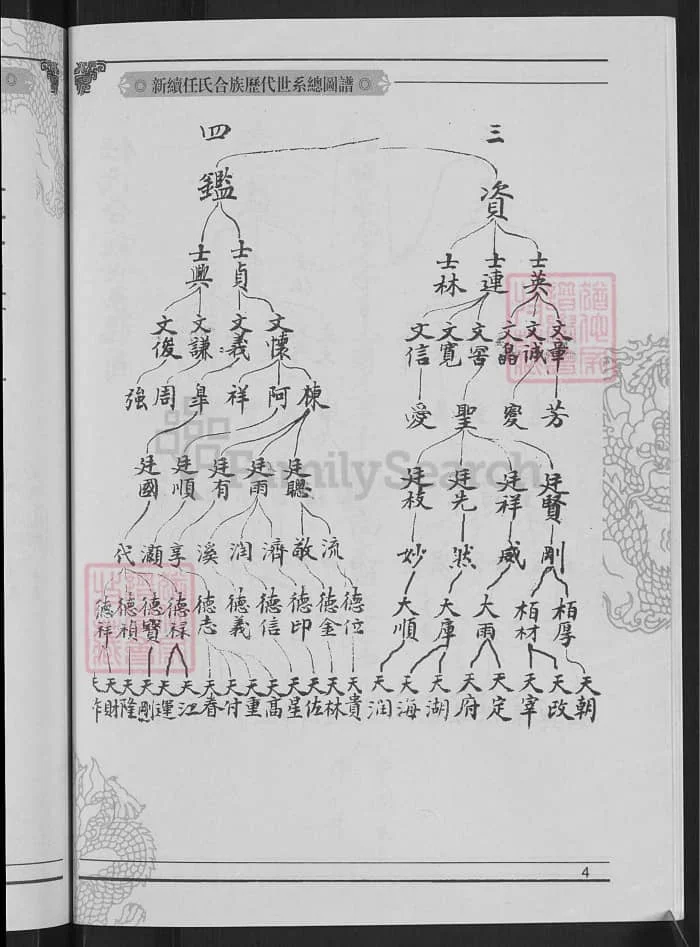 新續任氏合族歷代世系總圖譜
三 四
資 鑑
士英 士連 士林 士貞 士興
文章 文誠 文晶 文窖 文寬 文信 文懷 文義 文謙 文俊
芳 變 聖 愛 棟 阿 祥 皐 周 強
廷賢 廷祥 廷先 廷枝 廷聰 廷雨 廷有 廷順 廷國
剛 威 然 妙 流 敬 濟 潤 溪 享 灝 代
栢厚 栢材 大雨 大庫 大順 德位 德金 德印 德信 德義 德志 德祿 德寶 德禎 德祥
天朝 天政 天宰 天定 天府 天湖 天海 天潤 天貴 天林 天佐 天星 天高 天重 天付 天春 天江 天運 天剛 天隆 天財
FamilySearch
4